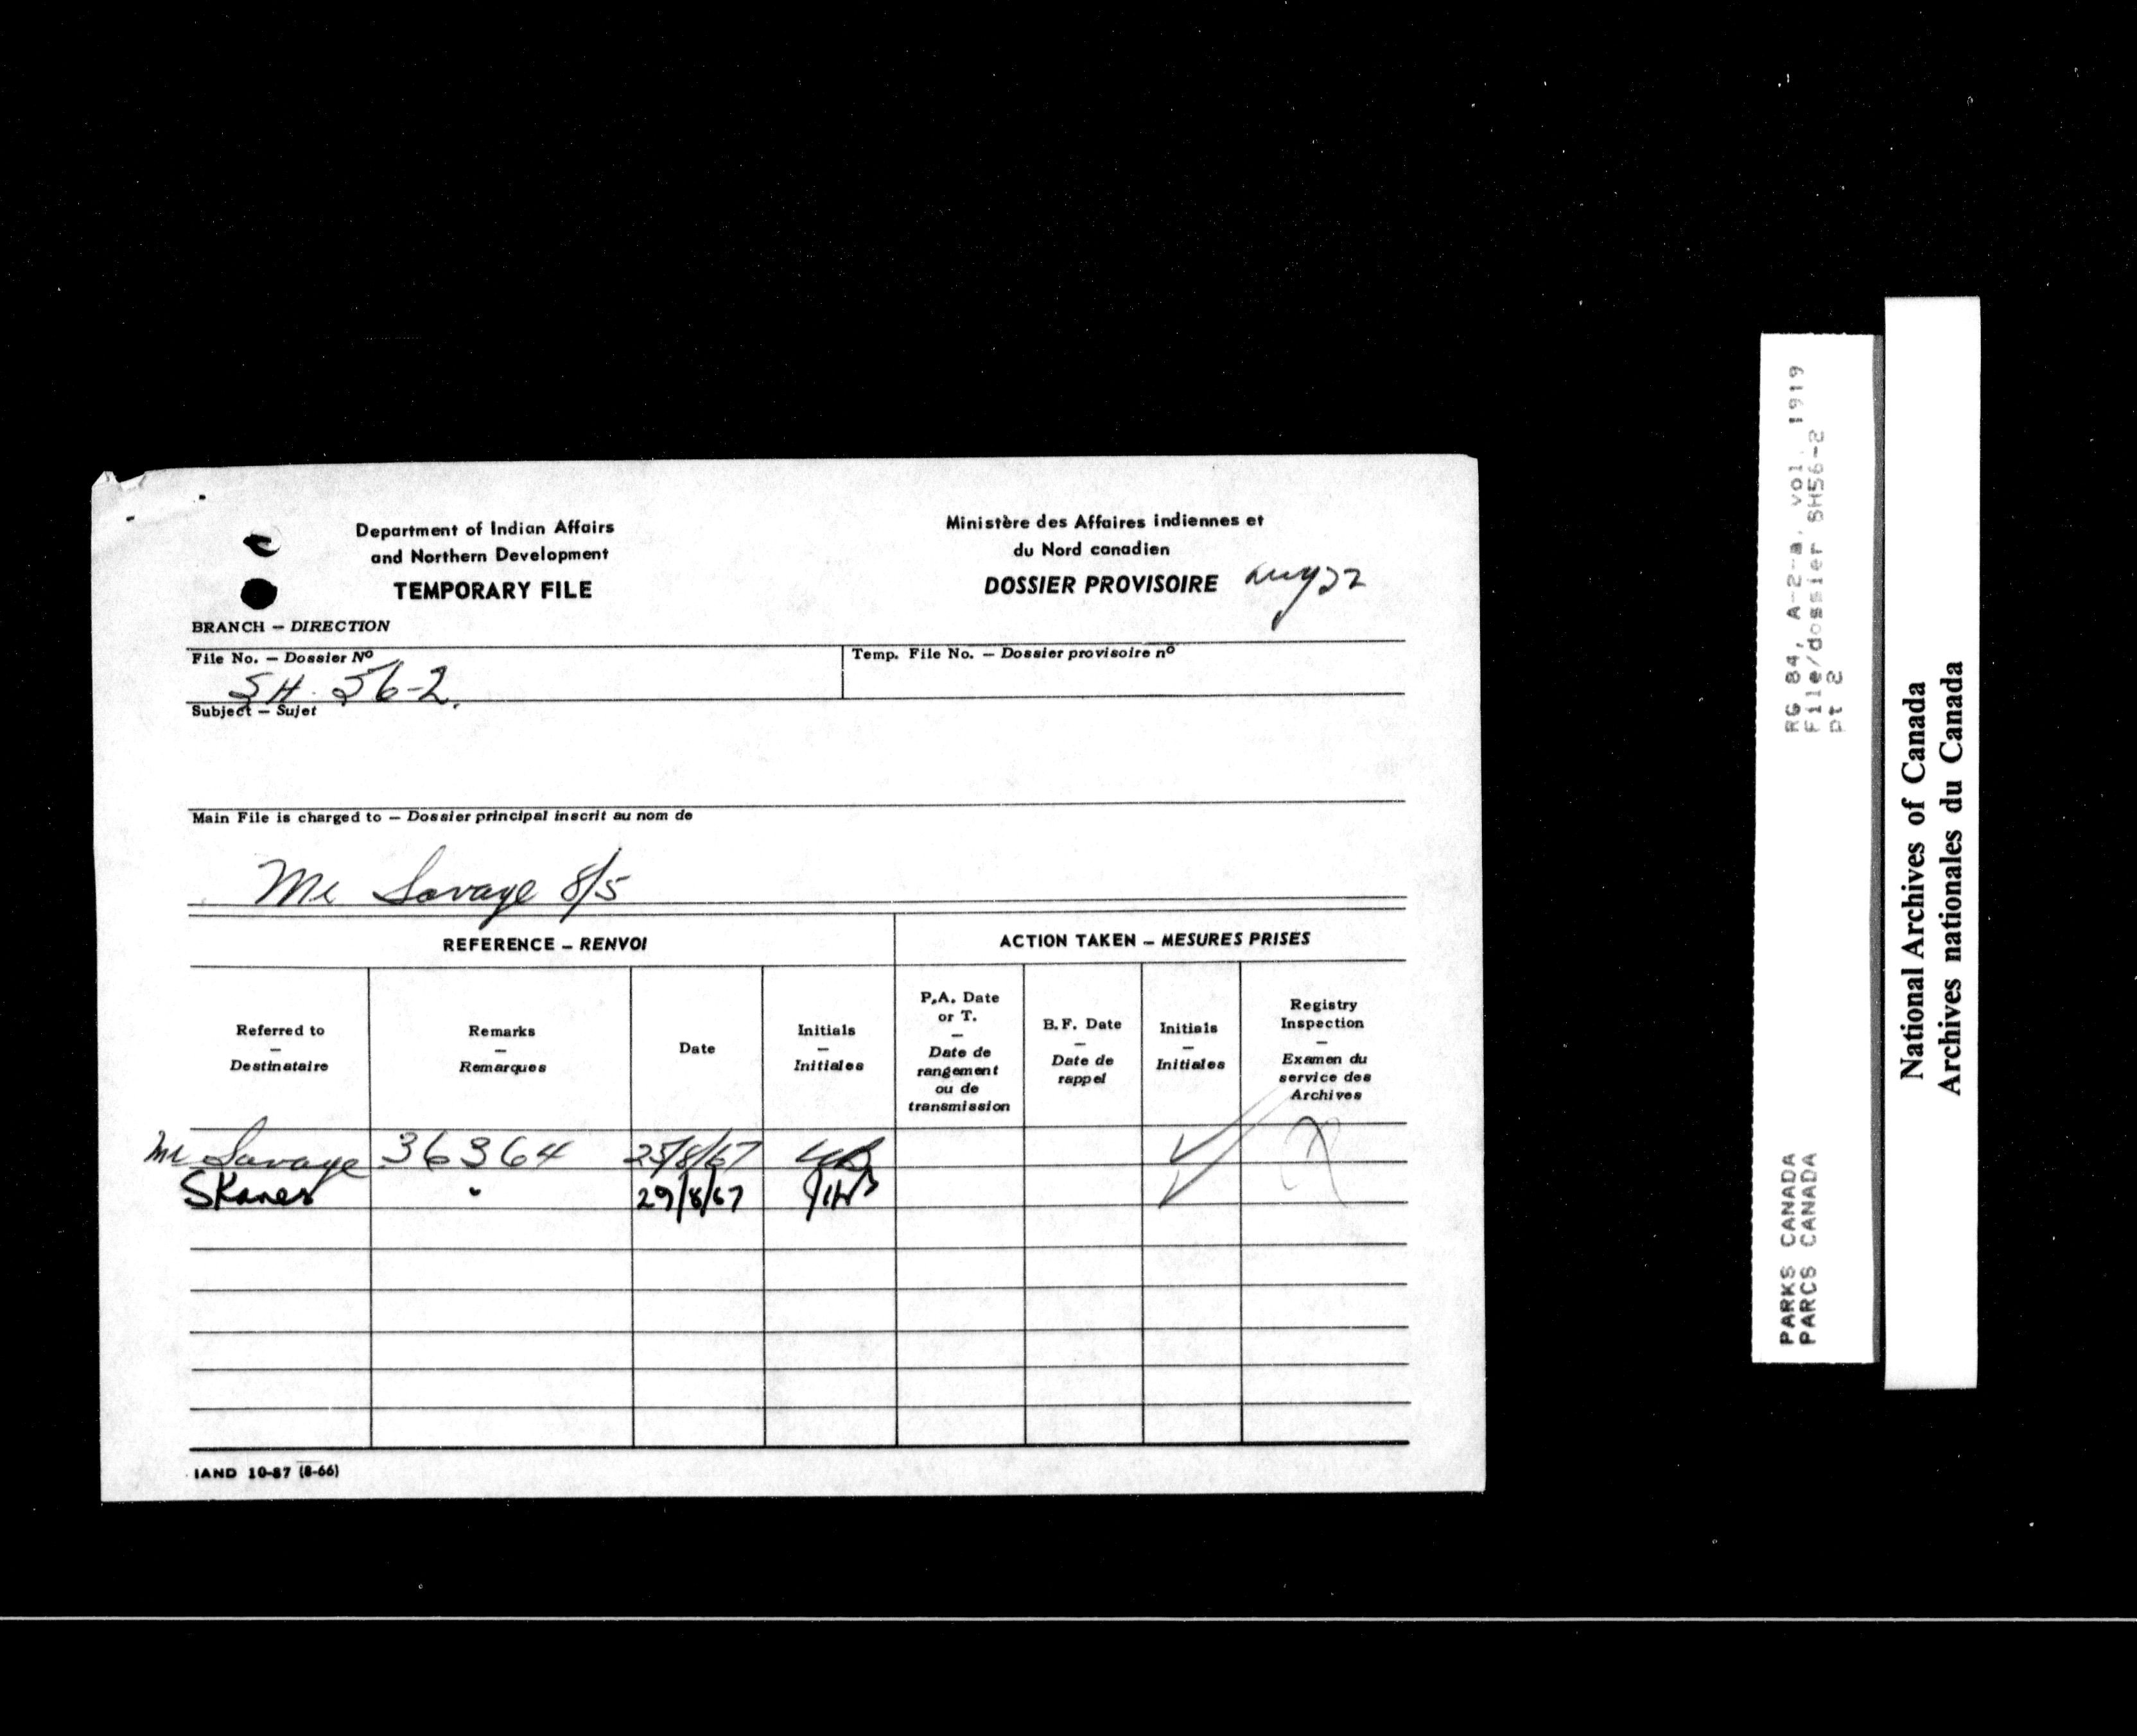 Department of Indian Affairs
and Northern Development
TEMPORARY FILE
Ministère des Affaires indiennes et
du Nord canadien
DOSSIER PROVISOIRE
BRANCH – DIRECTION
File No. – Dossier Nº
SH. 56-2.
Temp. File No. – Dossier provisoire nº
Subject – Sujet
Main File is charged to – Dossier principal inscrit au nom de
Mr Savage 8/5
REFERENCE – RENVOI
ACTION TAKEN – MESURES PRISES
Referred to
–
Destinataire
Remarks
–
Remarques
Date
Initials
–
Initiales
P.A. Date
or T.
–
Date de
rangement
ou de
transmission
B.F. Date
–
Date de
rappel
Initials
–
Initiales
Registry
Inspection
–
Examen du
service des
Archives
Mr Savage 36364 25/8/67
Skanes " 29/8/67
IAND 10-87 (8-66)
RG 84, A-2-a, vol. 1919
File/dossier SH56-2
pt 2
PARKS CANADA
PARCS CANADA
National Archives of Canada
Archives nationales du Canada